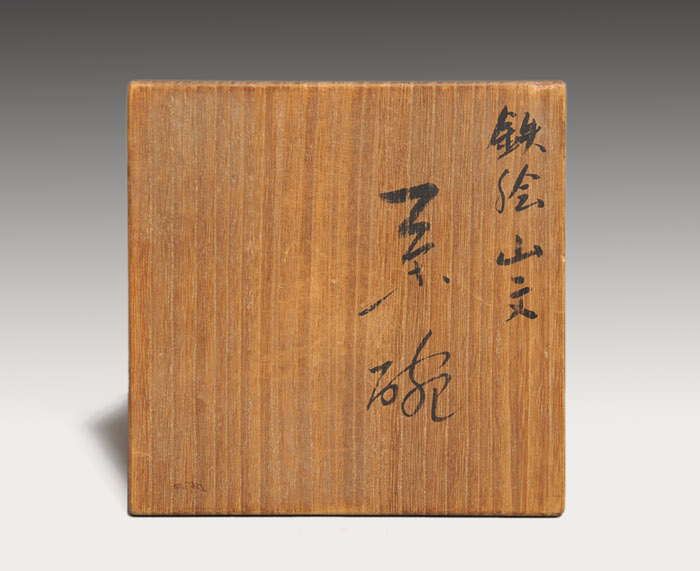 鉄絵山文
茶碗